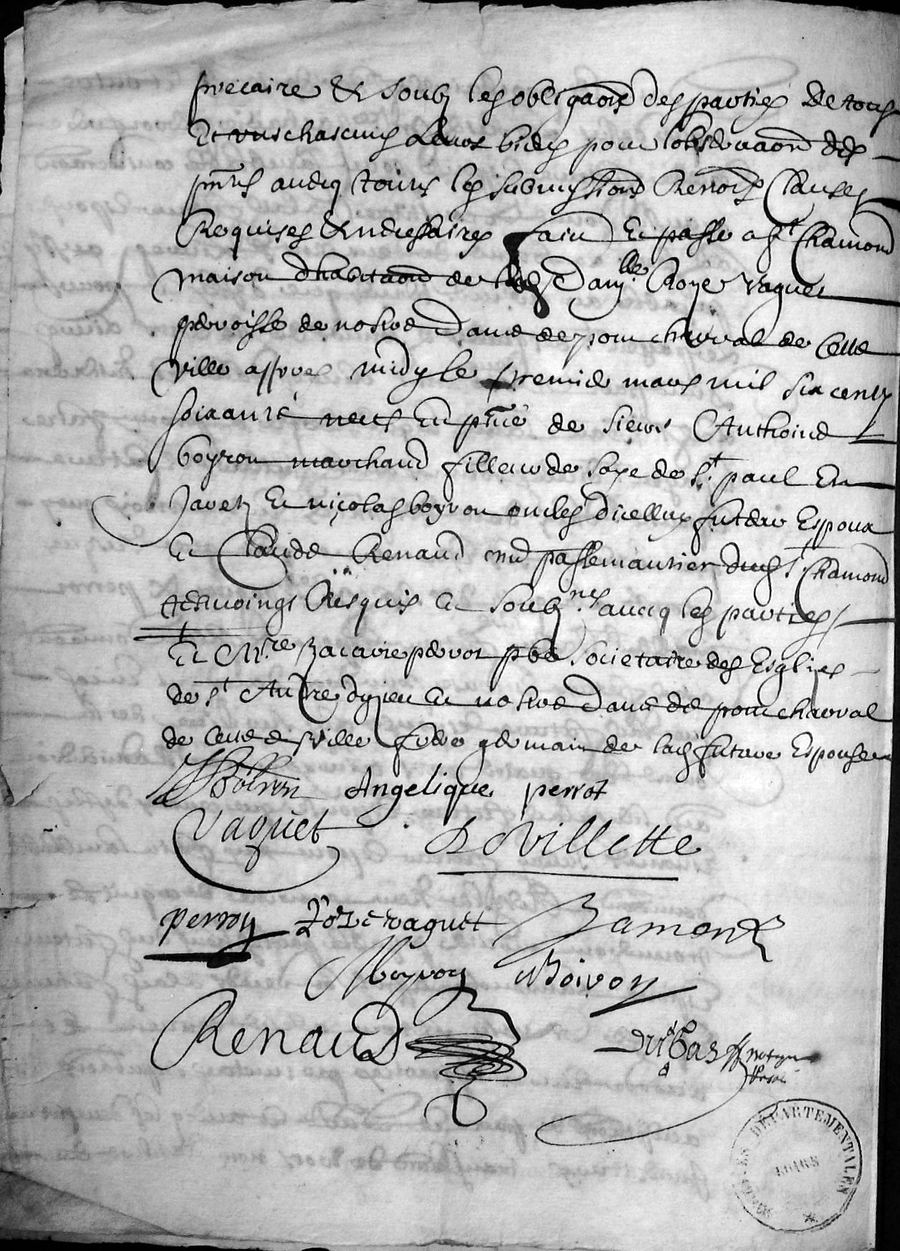 precaire & soubz les obliga͠ons des parties de tous
Et uns chascuns leurs biens pour lobserva͠on des
p͠ntes avecq toutes les submissions Renon͠s Clauses
Requises & necessaires faict Et passe a St Chamond
maison dhabita͠on de Dam:lle Roze vaguet
parroisse de nostre Dame de pont charral de Cette
ville appres midy le premier mars mil six centz
soixante neuf En p͠nce de sieurs Anthoine
boyron marchand filleur de soye de St paul En
Jarez Et nicolas boyron oncles dicelluy futeur Espoux
Et Claude Renaud md passemantier dud St Chamond
tesmoings Requis Et soubz nes avecq les parties
Et Mre Zacarie perrot pbre societaire des Esglises
de St André dyzieu Et nostre Dame de pont charral
de cette d ville frere germain de lad future Espouse
Boiron Angelique perrot
Vaguet Devillette
perrot Roze vaguet
Boyron Boiron
Renaud Dubas notaire Royal
ARCHIVES DÉPARTEMENTALES
LOIRE